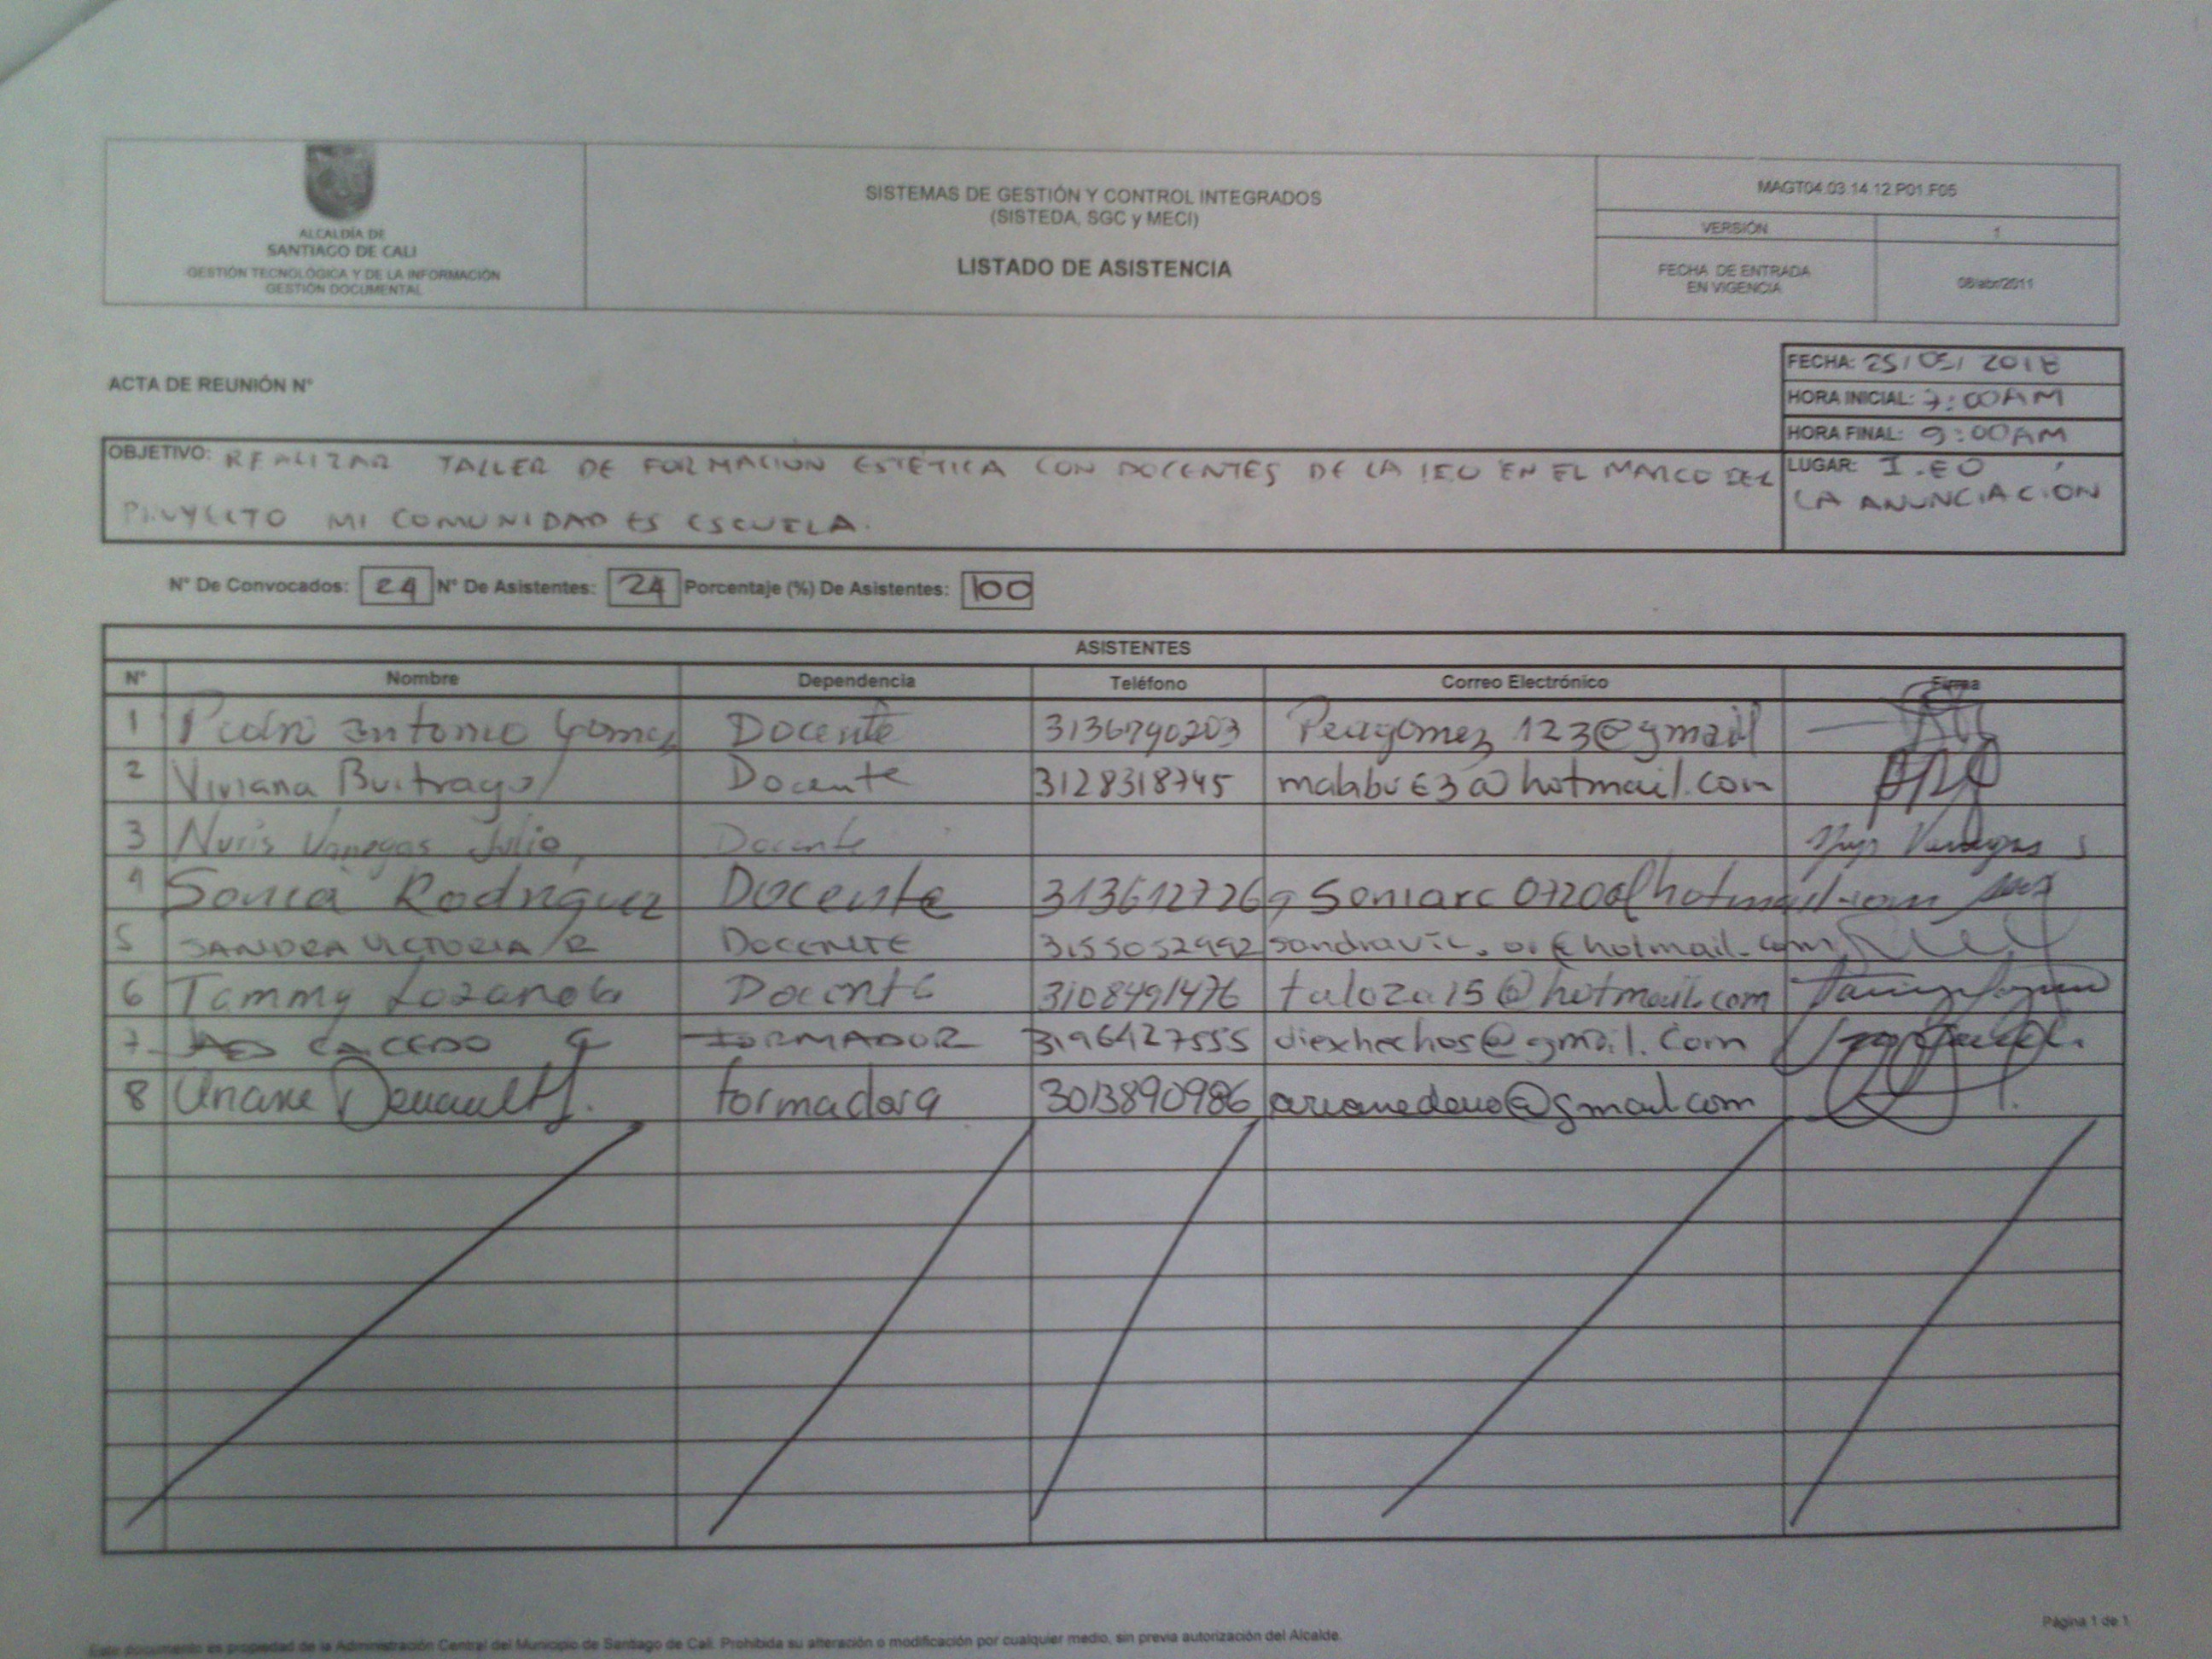 ALCALDÍA DE
SANTIAGO DE CALI
GESTIÓN TECNOLÓGICA Y DE LA INFORMACIÓN
GESTIÓN DOCUMENTAL
SISTEMAS DE GESTIÓN Y CONTROL INTEGRADOS
(SISTEDA, SGC y MECI)
LISTADO DE ASISTENCIA
MAGT04.03.14.12.P01.F05
VERSIÓN 1
FECHA DE ENTRADA
EN VIGENCIA
08/abr/2011
ACTA DE REUNIÓN N°
FECHA: 25/05/2018
HORA INICIAL: 7:00AM
HORA FINAL: 9:00AM
LUGAR: I.EO
LA ANUNCIACION
OBJETIVO: REALIZAR TALLER DE FORMACION ESTETICA CON DOCENTES DE LA IEO EN EL MARCO DEL
PROYECTO MI COMUNIDAD ES ESCUELA.
N° De Convocados: 24 N° De Asistentes: 24 Porcentaje (%) De Asistentes: 100
ASISTENTES
N° Nombre Dependencia Teléfono Correo Electrónico Firma
1 Antonio Gomez Docente 3136790203
2 Viviana Buitrago Docente 3128318745
3 Nuris Vanegas Julio Docente
4 Sonia Rodriguez Docente 3136127269
5 SANDRA VICTORIA R Docente
6 Tammy Lozano Docente 3108491476 taloza15@hotmail.com
7 FORMADOR 3196127555 diexhechos@gmail.com
8 formadora
Este documento es propiedad de la Administración Central del Municipio de Santiago de Cali. Prohibida su alteración o modificación por cualquier medio, sin previa autorización del Alcalde.
Página 1 de 1